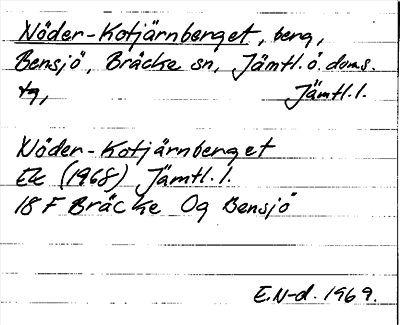 Nöder-Kotjärnberget, berg,
Bensjö, Bräcke sn, Jämtl. ö. doms.
tg, Jämtl. l.
Nöder-Kotjärnberget
Ek (1968) Jämtl. l.
18 F Bräcke Og Bensjö
E.N-d. 1969.